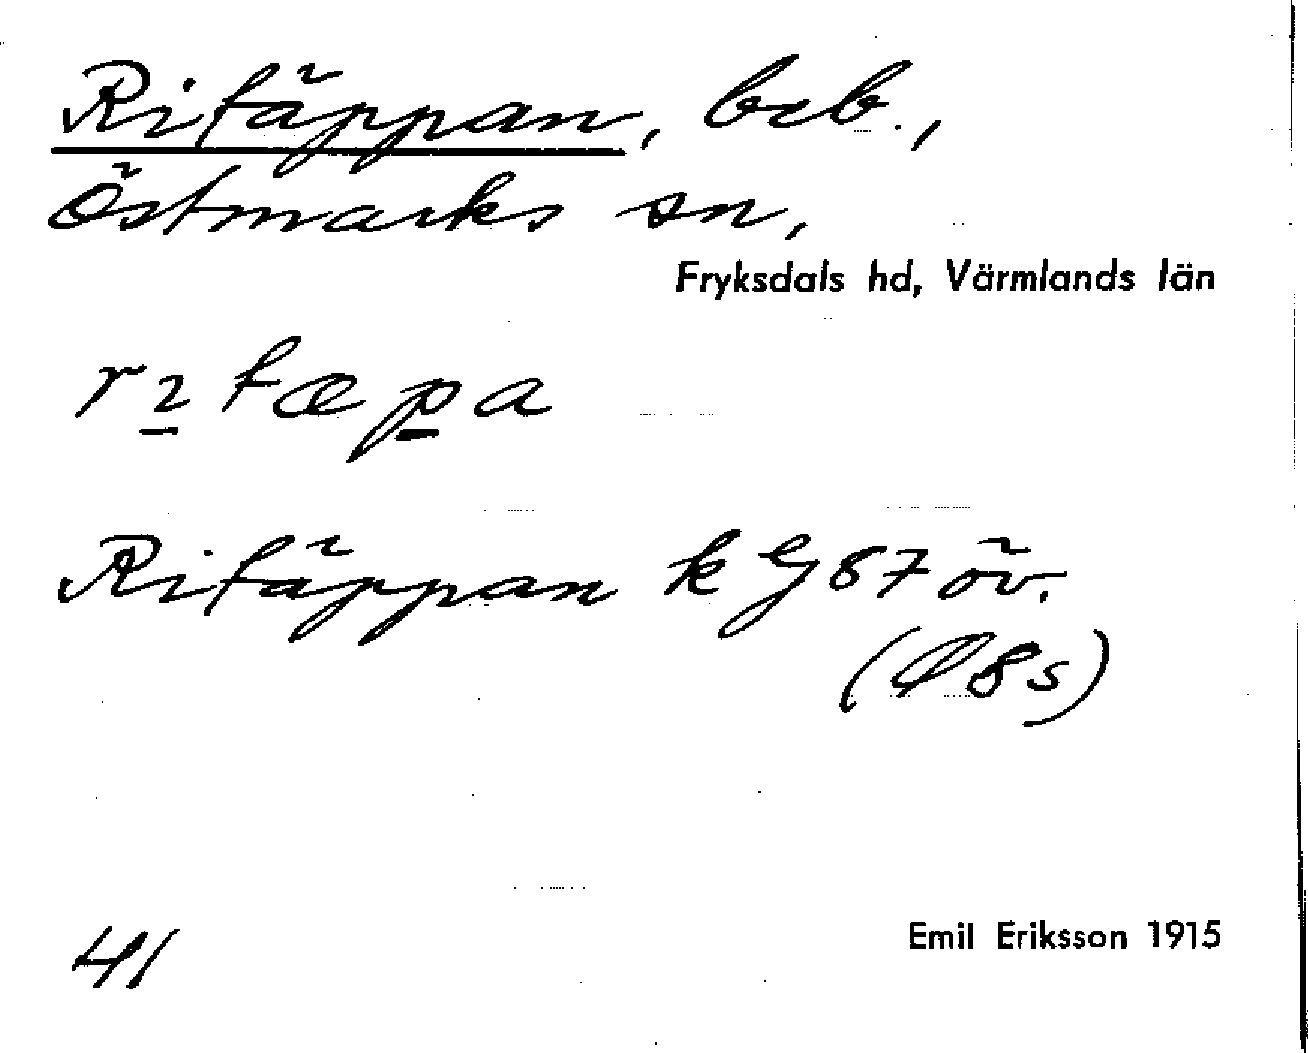 Ritäppan, beb.,
Östmarks sn,
Fryksdals hd, Värmlands län
rıtæpa
Ritäppan k G 87 öv.
(Ø8s)
41
Emil Eriksson 1915